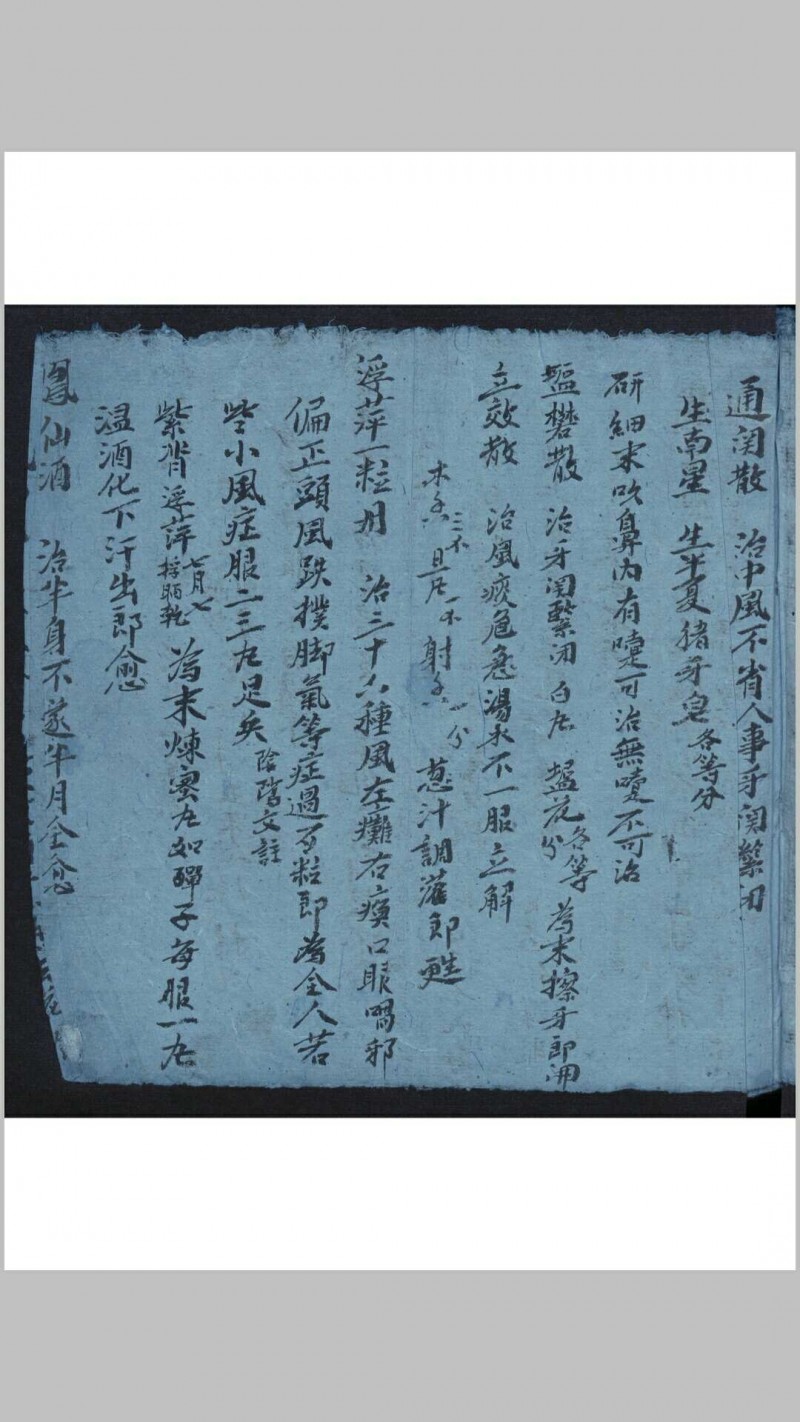 通関散 治中風不省人事牙関緊闭
生南星 生半夏 猪牙皂各等分
研細末吹鼻内有嚏可治無嚏不可治
塩礬散 治牙関緊闭 白 塩花各等分 為末擦牙即開
立效散 治風痰危急湯水不一服立解
木 三 一 射 一分 葱汁調灌即甦
浮萍一粒丹 治三十六種風左癱右瘓口眼喎邪
偏正頭風跌撲脚氣等症過百粒即為全人若
些小風症服二三九足矣 陰隲文註
紫背浮萍七月七採晒乾 為末煉蜜九如彈子每服一九
温酒化下汗出即愈
鳳仙酒 治半身不遂半月全愈